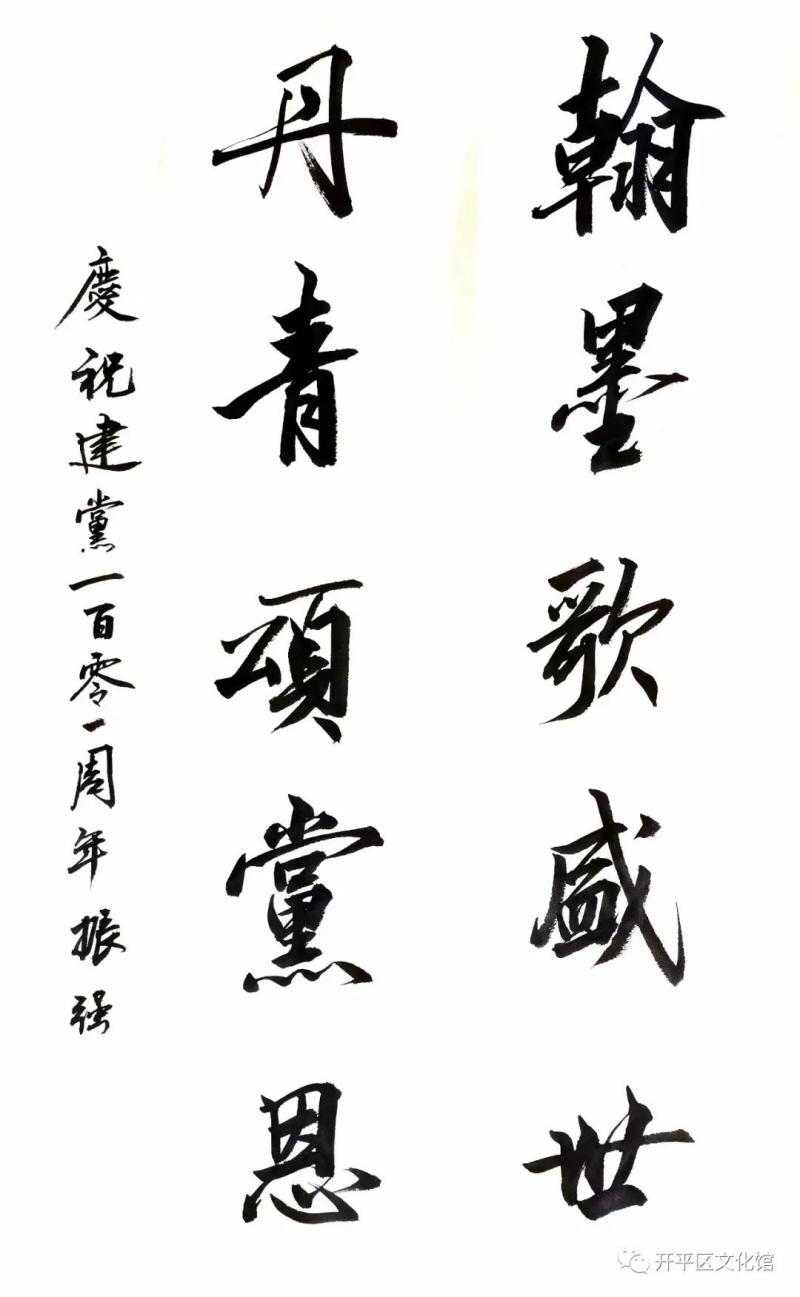 翰墨歌盛世
丹青頌黨恩
慶祝建黨一百零一周年 振强
开平区文化馆